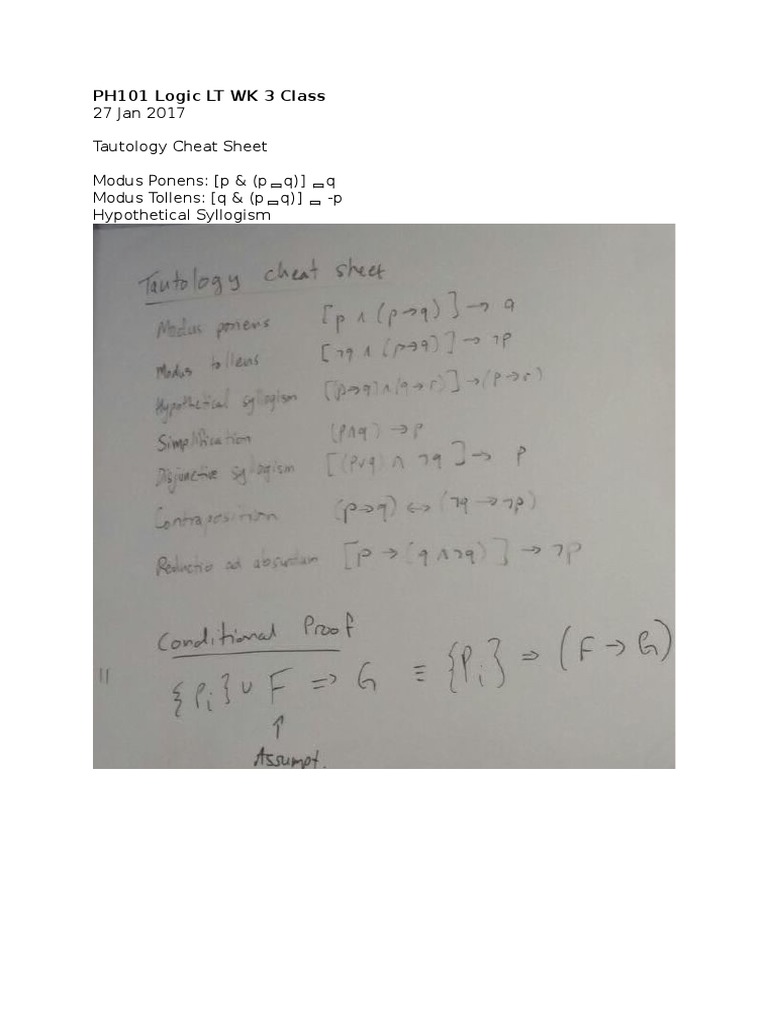 PH101 Logic LT WK 3 Class
27 Jan 2017
Tautology Cheat Sheet
Modus Ponens: [p & (p▭q)] ▭q
Modus Tollens: [q & (p▭q)] ▭ -p
Hypothetical Syllogism
Tautology cheat sheet
Modus ponens [p ∧ (p→q)] → q
Modus tollens [¬q ∧ (p→q)] → ¬p
Hypothetical syllogism [(p→q)∧(q→r)]→(p→r)
Simplification (p∧q) → p
Disjunctive syllogism [(p∨q) ∧ ¬q] → p
Contraposition (p→q) ↔ (¬q→¬p)
Reductio ad absurdum [p → (q∧¬q)] → ¬p
Conditional Proof
{Pi} ∪ F ⇒ G ≡ {Pi} ⇒ (F → G)
↑
Assumpt.